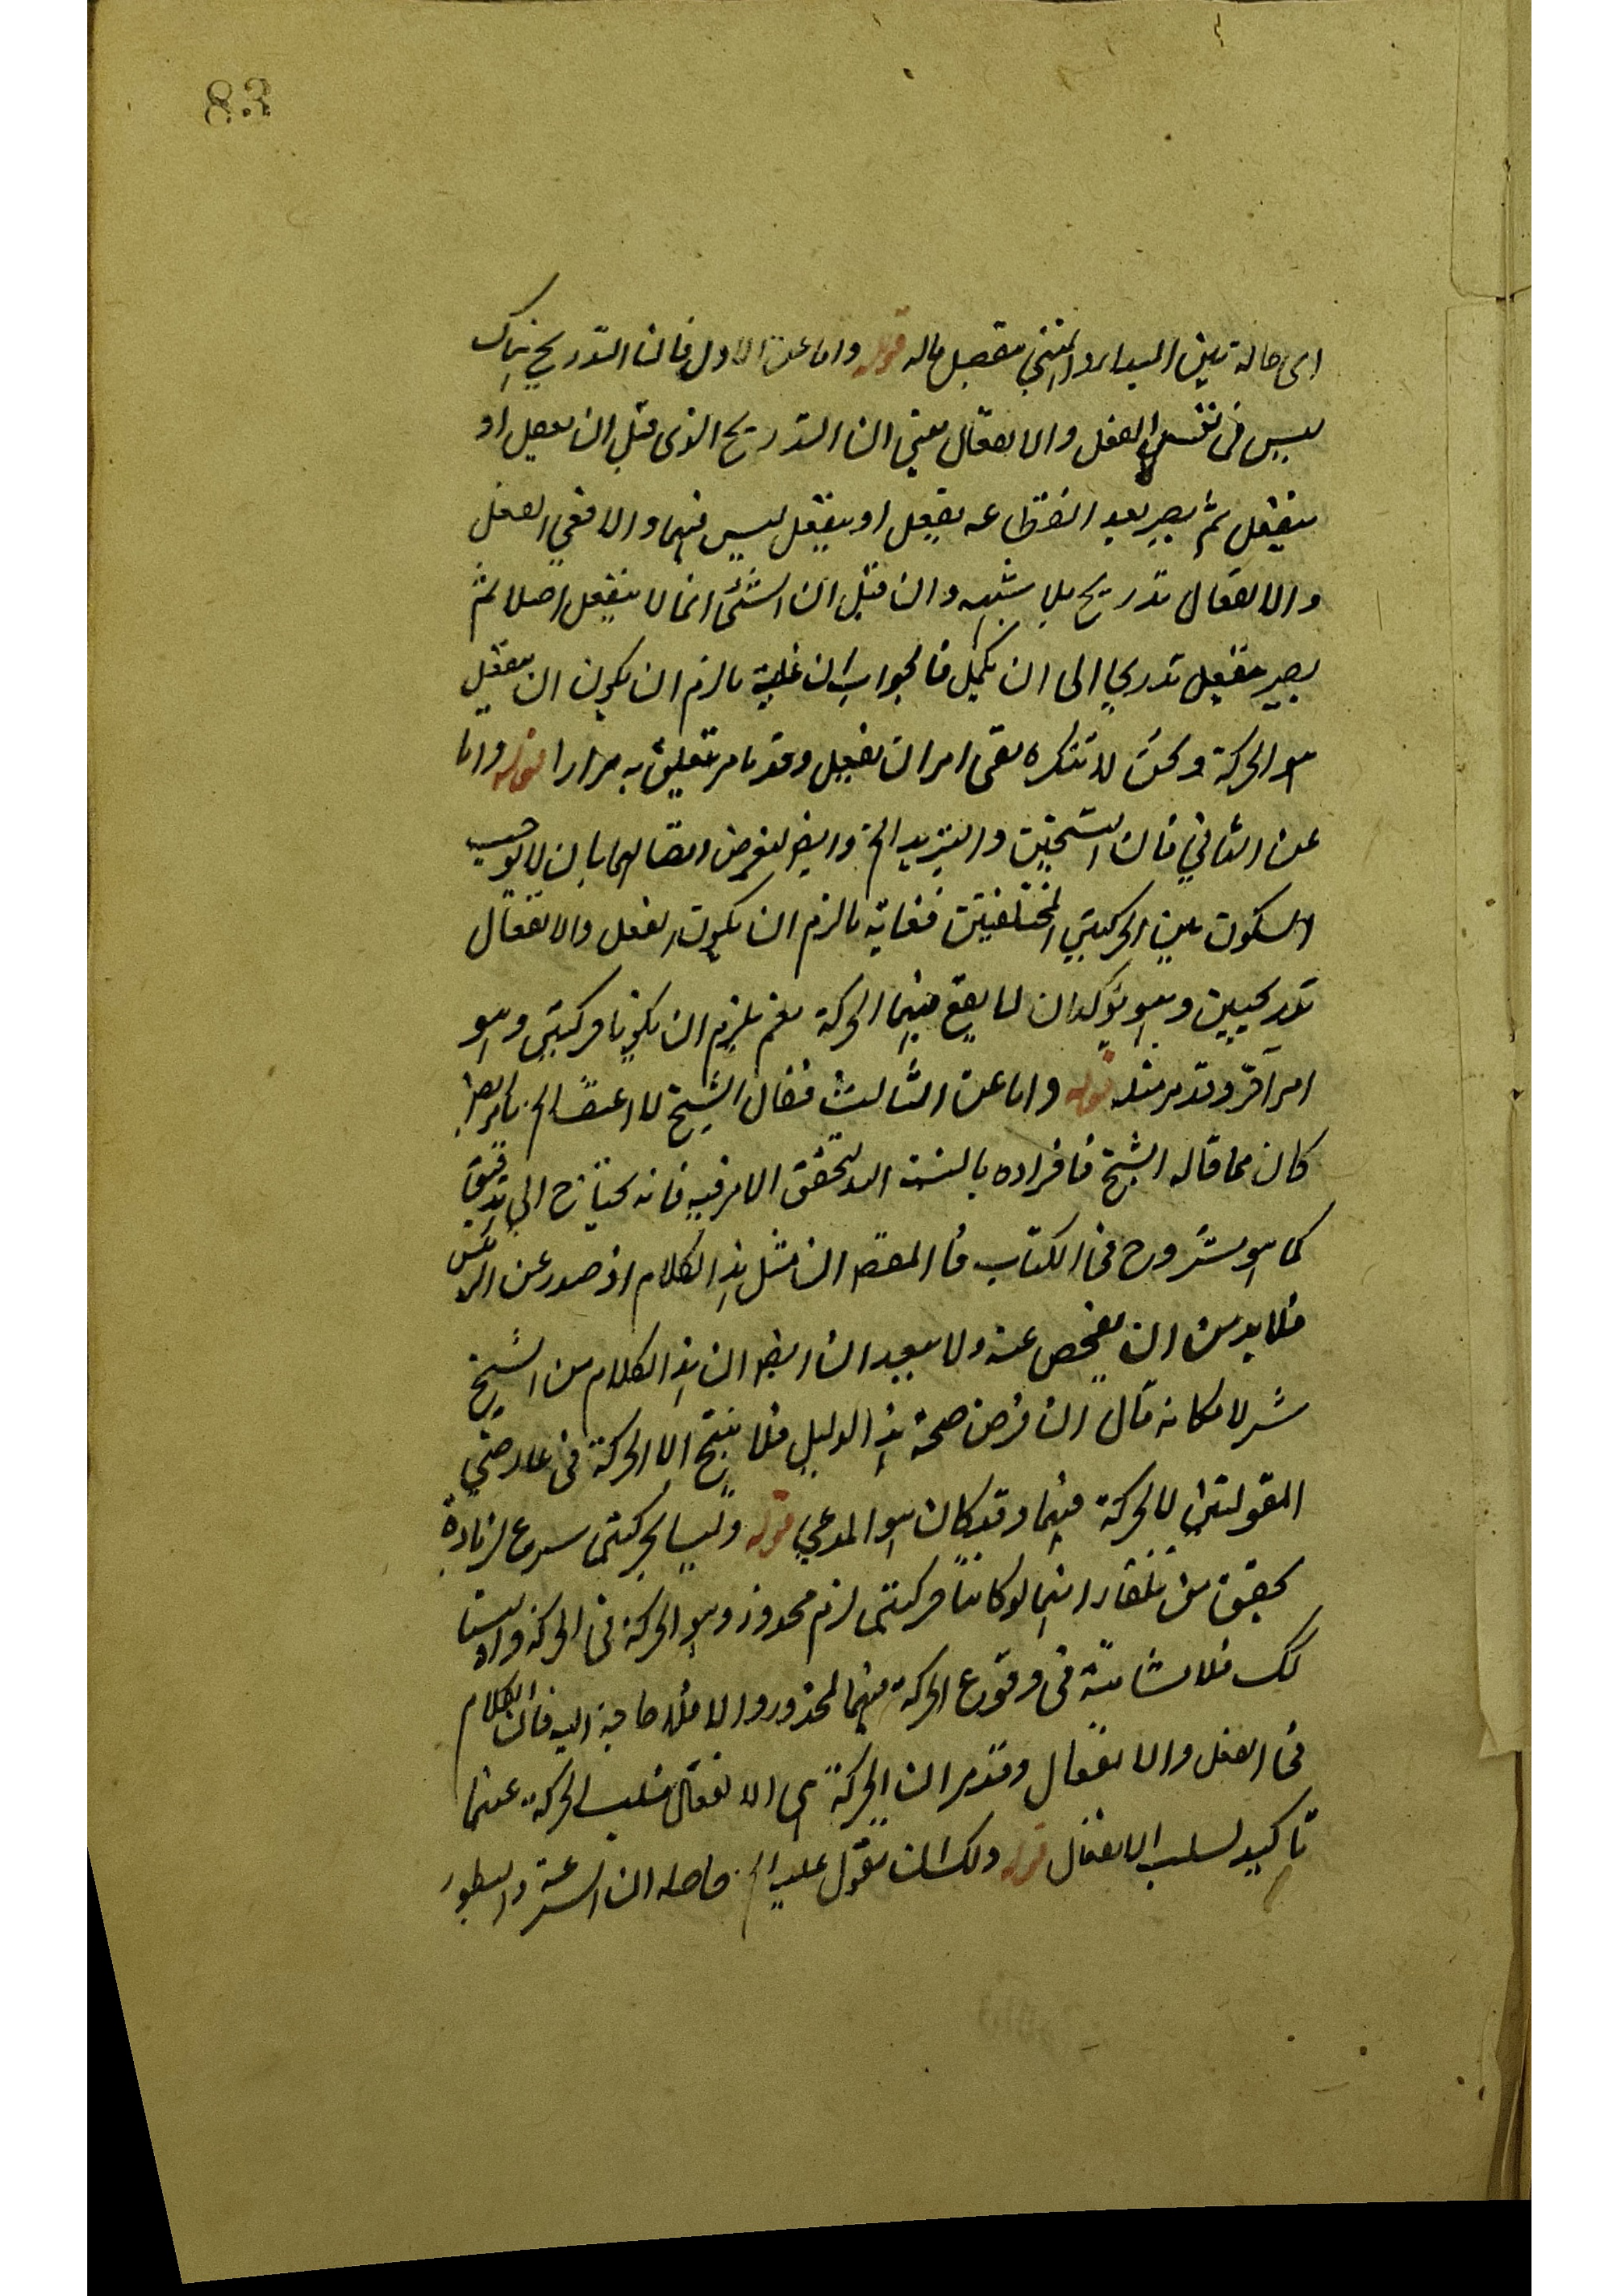 83
اى حالة بين المبدا والمنتهى متصل ماله قوله واما عن الاول فان التدريج هناك
ليس فى نفس الفعل والانفعال يعنى ان التدريج الذى قبل ان يفعل او
ينفعل ثم يصير بعد انقطاعه يفعل او ينفعل ليس فيهما والا ففى الفعل
والانفعال تدريج بلا شبهه وان قيل ان الشئ انما لا ينفعل اصلا ثم
يصير منفعل تدريجا الى ان يكمل فالجواب ان غاية ما لزم ان يكون ان ينفعل
هو الحركة ونحن لا ننكره بقى امر ان يفعل وقد ما مر يتعلق به مرارا قوله واما
عن الثانى فان التسخين والتبريد الخ وايضا لنفرض اتصالهما بان لا يوجب
السكون بين الحركتين المختلفتين فغاية ما لزم ان يكون الفعل والانفعال
تدريجيين وهو يؤكد ان لا يقع فيهما الحركة نعم يلزم ان يكونا حركتين وهو
امر آخر وقد مر مثله قوله واما عن الثالث فقال الشيخ لا اعتقد الخ
كان مما قاله الشيخ فافراده بالنسبة الى تحقق الامر فيه فانه يحتاج الى تدقيق
كما هو مشروح فى الكتاب فالمقصد ان مثل هذا الكلام اذ صدر عن الرئيس
فلا بد من ان يفحص عنه ولا يبعد ان ايضا ان هذا الكلام من الشيخ
شرلا فكانه قال ان فرض صحة هذا الدليل فلا ينتج الا الحركة فى عارضى
المقولتين لا الحركة فيهما وقد كان هو المدعى قوله وليسا بحركتى سرع لزيادة
تحقيق من تلقاء انهما لو كانتا حركتين لزم محذور وهو الحركة فى الحركة واذ ليستا
كك فلا مشاحة فى وقوع الحركة فيهما لمحذور والا فلا حاجة اليه فان الكلام
فى الفعل والانفعال وقد مر ان الحركة هى الانفعال فسلب الحركة عنهما
تاكيد لسلب الانفعال قوله ولك ان تقول عليه الخ حاصله ان السرعة والبطور